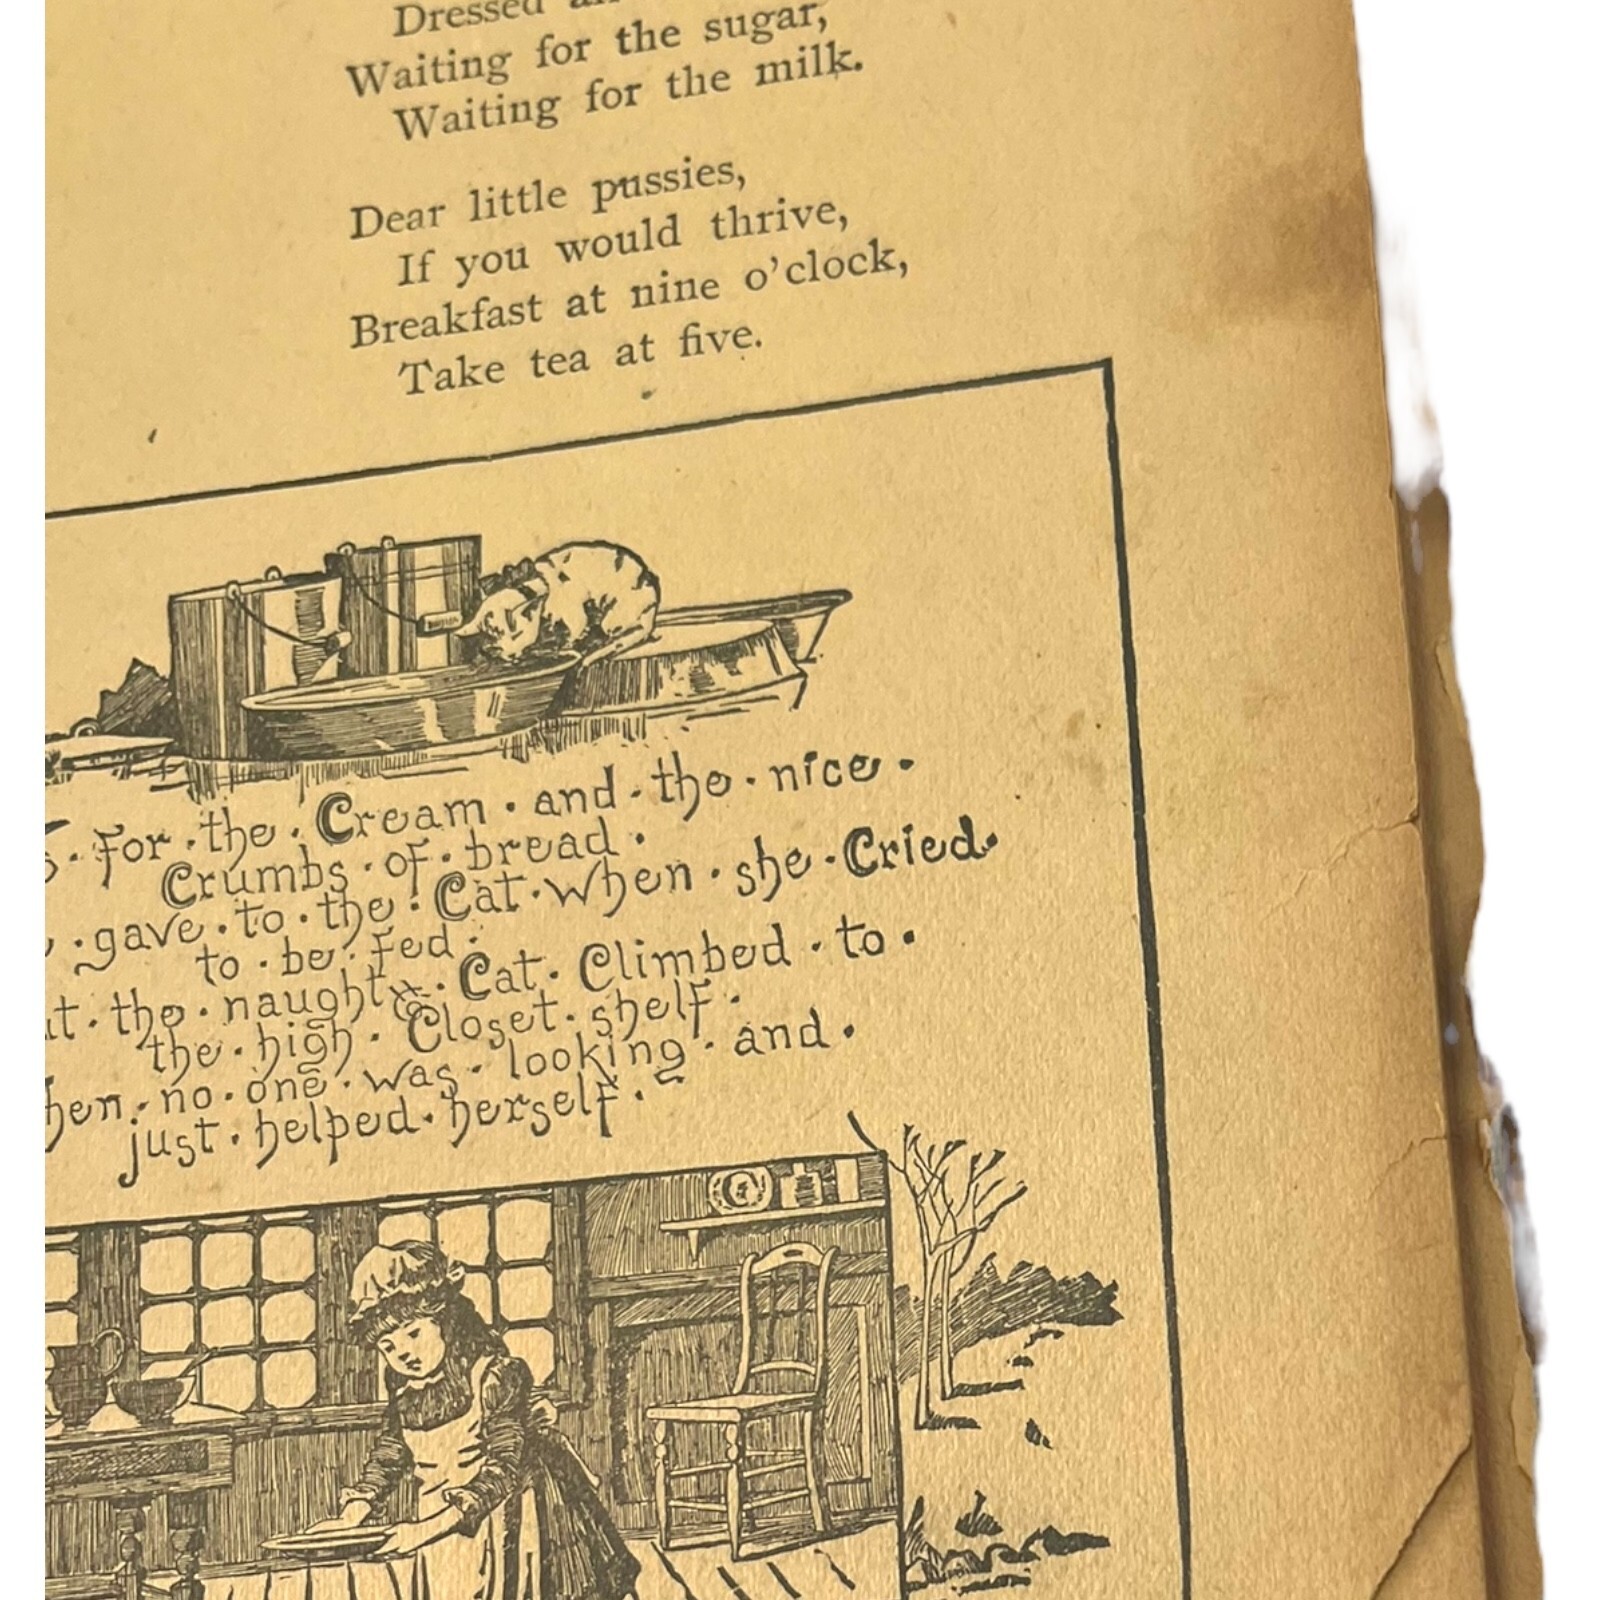 Dressed
Waiting for the sugar,
Waiting for the milk.
Dear little pussies,
If you would thrive,
Breakfast at nine o'clock,
Take tea at five.
for · the · Cream · and · the · nice ·
Crumbs · of · bread ·
· gave · to · the · Cat · when · she · Cried ·
to · be · fed ·
the · naughty · Cat · Climbed · to ·
the · high · Closet · shelf ·
no · one · was · looking · and ·
just · helped · herself ·